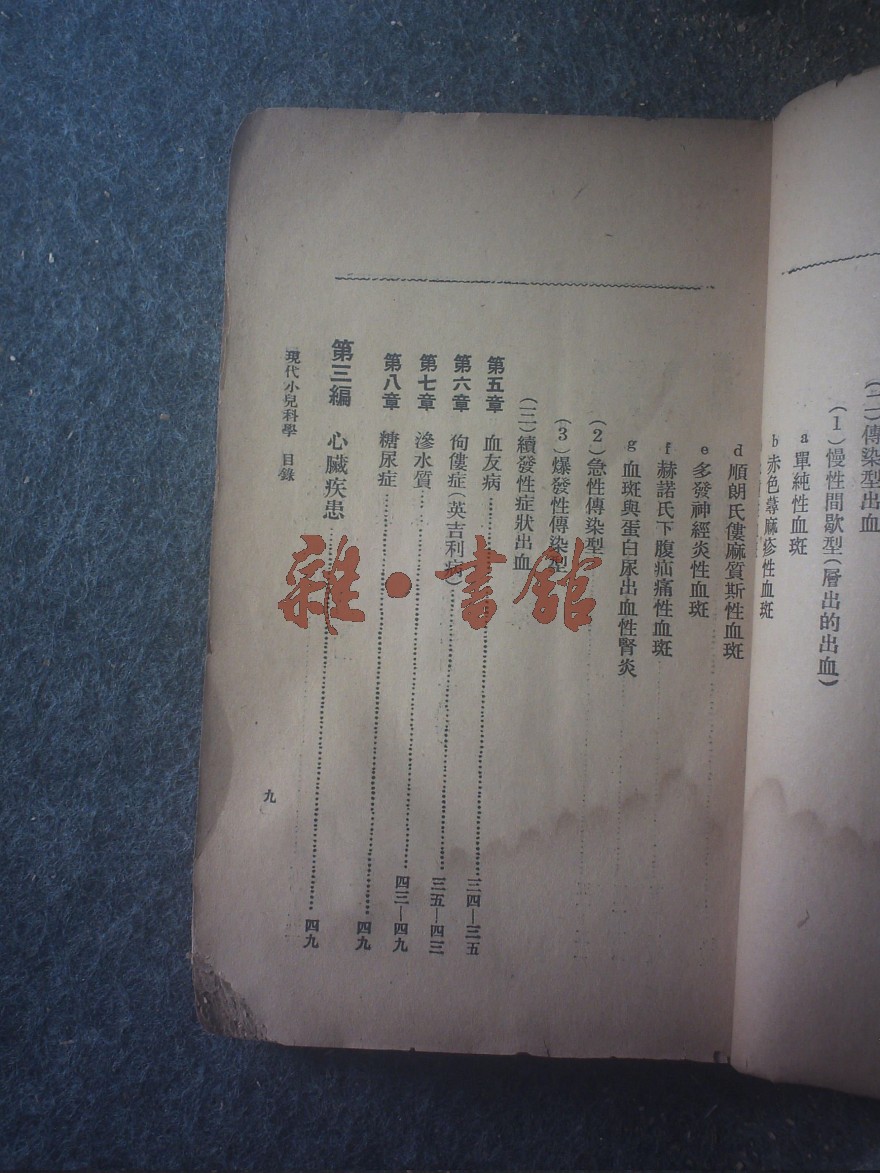 (二)傳染型出血
(1)慢性間歇型(層出的出血)
a 單純性血斑
b 赤色蕁麻疹性血斑
d 順朗氏僂麻質斯性血斑
e 多發神經炎性血斑
f 赫諾氏下腹疝痛性血斑
g 血斑與蛋白尿出血性腎炎
(2)急性傳染型
(3)爆發性傳染型
(三)續發性症狀出血
第五章 血友病 三四—三五
第六章 佝僂症(英吉利病) 三五—四三
第七章 滲水質 四三—四九
第八章 糖尿症 四九
第三編 心臟疾患 四九
現代小兒科學 目錄
九
雜·書館